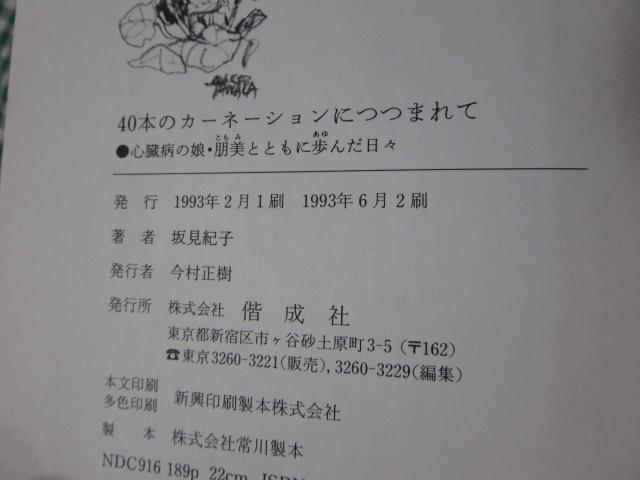 40本のカーネーションにつつまれて
●心臓病の娘・朋美とともに歩んだ日々
発行 1993年2月1刷 1993年6月2刷
著者 坂見紀子
発行者 今村正樹
発行所 株式会社 偕成社
東京都新宿区市ヶ谷砂土原町3-5(〒162)
☎東京3260-3221(販売),3260-3229(編集)
本文印刷
多色印刷 新興印刷製本株式会社
製本 株式会社常川製本
NDC916 189p 22cm ISBN